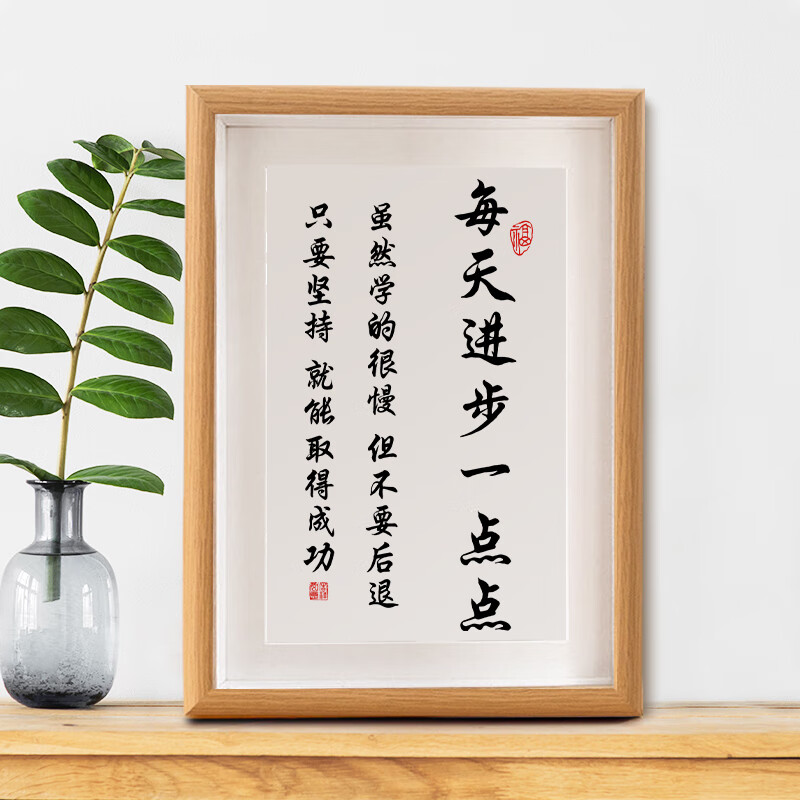 每天进步一点点
福
虽然学的很慢 但不要后退
只要坚持 就能取得成功